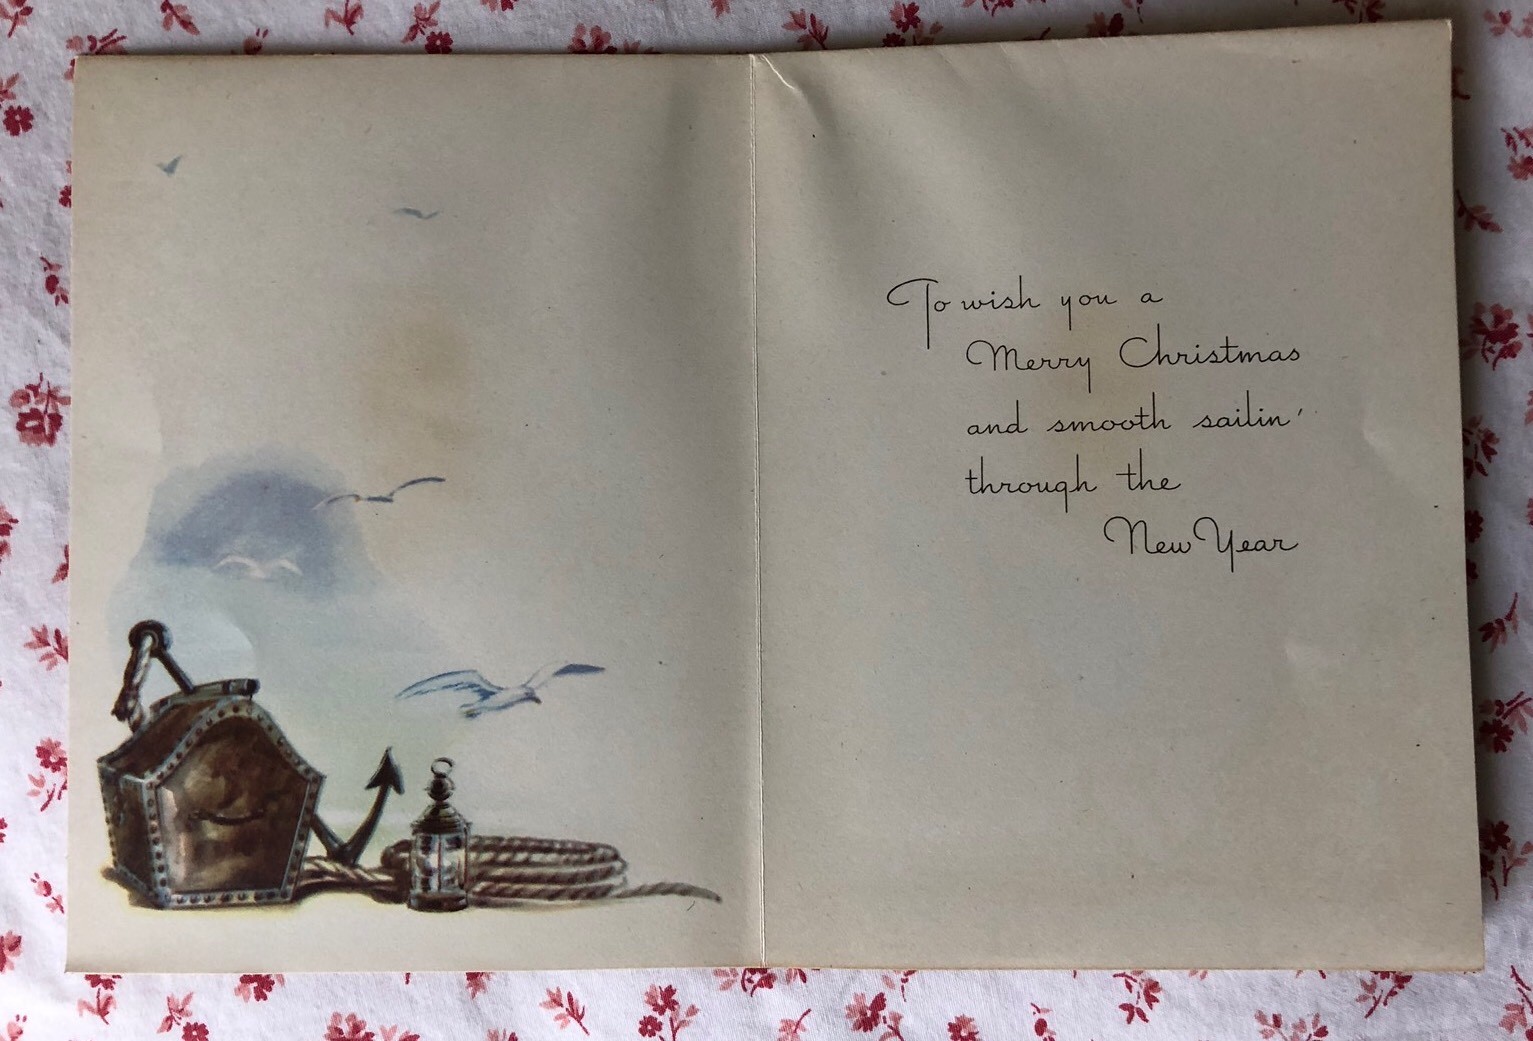 To wish you a
Merry Christmas
and smooth sailin'
through the
New Year